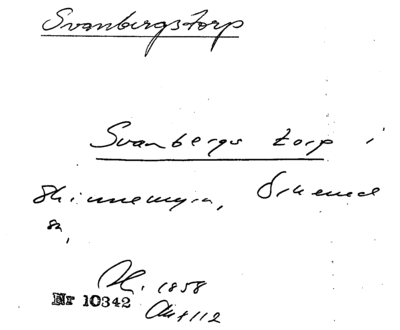 Svanbergstorp
Svanbergs torp i
Skinnemyra,
sn,
H. 1858
Nr 10342
Akt 112